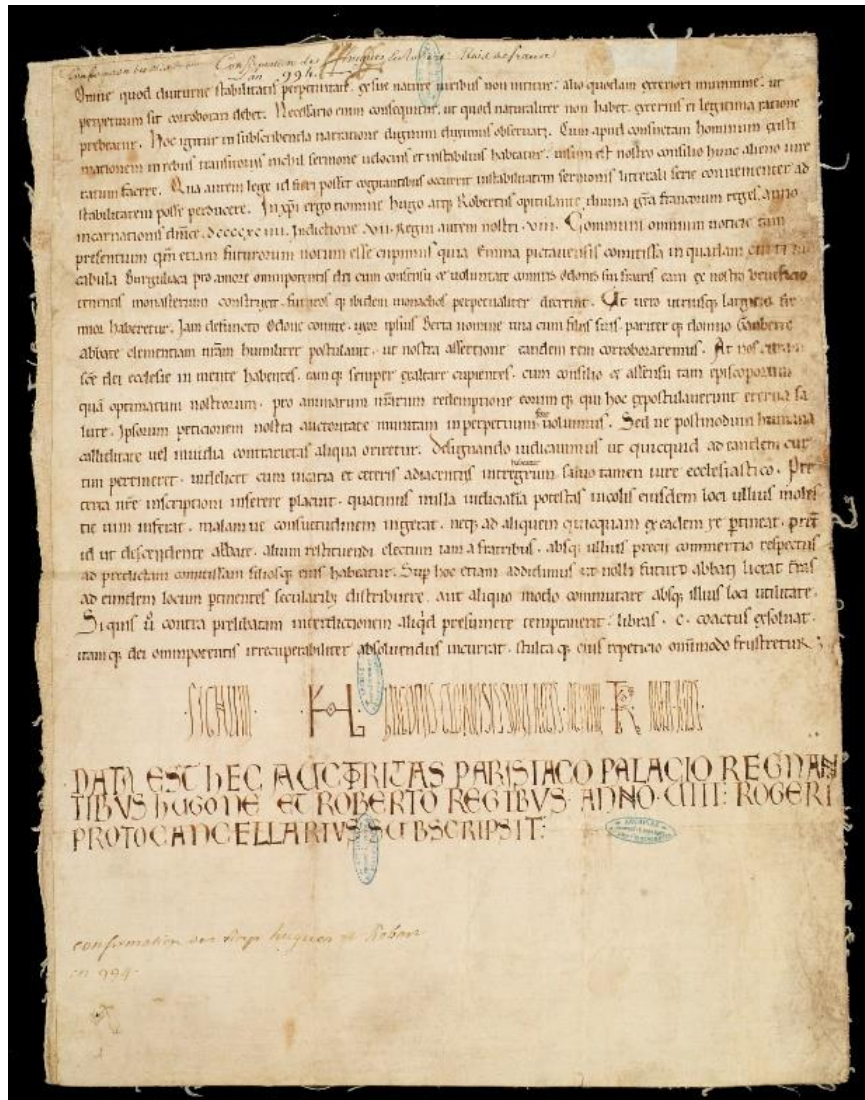 Confirmation des Hugues et Robert Rois de france
L'an 994.
Omne quod diuturne stabilitatis perpetuitate, ex sue nature uiribus non nititur, alio quodam exteriori munimine, ut
perpetuum sit corroborari debet. Necessario enim consequitur, ut quod naturaliter non habet, exterius ei legitima ratione
prebeatur. Hoc igitur in subscribenda narratione dignum duximus obseruari. Cum apud consuetam hominum existi
mationem in rebus transitoriis nichil sermone uelocius et instabilius habeatur, uisum est nostro consilio hunc alieno iure
ratum facere. Qua autem lege id fieri possit cogitantibus occurrit instabilitatem sermonis litterali serie conuenienter ad
stabilitatem posse perducere. In xpi ergo nomine hugo atq; Robertus opitulante diuina gra francorum reges, anno
incarnationis dnice. dcccc xc iiii. Indictione .vii. Regni autem nostri .viii. Communi omnium noticie tam
presentium qm etiam futurorum notum esse cupimus quia Emma pictauensis comitissa in quadam curti
cabula Burguliaca pro amore omnipotentis dei cum consensu et uoluntate comitis Odonis sui fratris eam ex nostro beneficio
tenentis monasterium construxit, futuros q; ibidem monachos perpetualiter decreuit. Ut uero utriusq; largitio fir
mior haberetur. Iam defuncto Odone comite, uxor ipsius Berta nomine una cum filiis suis, pariter q; domno Gauberto
abbate clementiam nram humiliter postulauit, ut nostra assertione eandem rem corroboraremus. At nos curam
sce dei ecclesie in mente habentes, eam q; semper exaltare cupientes, cum consilio et assensu tam episcoporum
qua optimatum nostrorum, pro animarum nrarum redemptione eorum q; qui hoc expostulauerunt eterna sa
lute. Ipsorum peticionem nostra auctoritate munitam in perpetuum fore uolumus. Sed ne postmodum humana
calliditate uel inuidia contrarietas aliqua oriretur, designando iudicauimus ut quicquid ad eandem cur
tim pertineret, uidelicet cum uicaria et ceteris adiacentiis integrum habeatur saluo tamen iure ecclesiastico. Pre
terea nre inscriptioni inserere placuit, quatinus nulla iudiciaria potestas incolis eiusdem loci ullius moles
tie uim inferat, malam ue consuetudinem ingerat, neq; ad aliquem quicquam ex eadem re ptineat, pret
id ut descendente abbate, alium restituendi electum tam a fratribus, absq; ullius precii commertio respectus
ad predictam comitissam filiosq; eius habeatur. Sup hoc etiam addidimus ut nulli futuro abbati liceat tras
ad eundem locum ptinentes secularib; distribuere, aut aliquo modo commutare absq; illius loci utilitate.
Siquis u contra prelibatam interdictionem aliqd presumere temptauerit, libras .c. coactus exsoluat,
iram q; dei omnipotentis irrecuperabiliter absoluendus incurrat, stulta q; eius repeticio ommimodo frustretur.
SIGNUM HUGONIS GLORIOSISSIMI REGIS. SIGNUM R ROTBERTI REGIS
DATA EST HEC AUCTORITAS PARISIACO PALACIO REGNAN
TIBVS HUGONE ET ROBERTO REGIBVS ANNO VIIII: ROGERI
PROTOCANCELLARIVS SUBSCRIPSIT:
confirmation des Roys hugues et Robert
en 994.